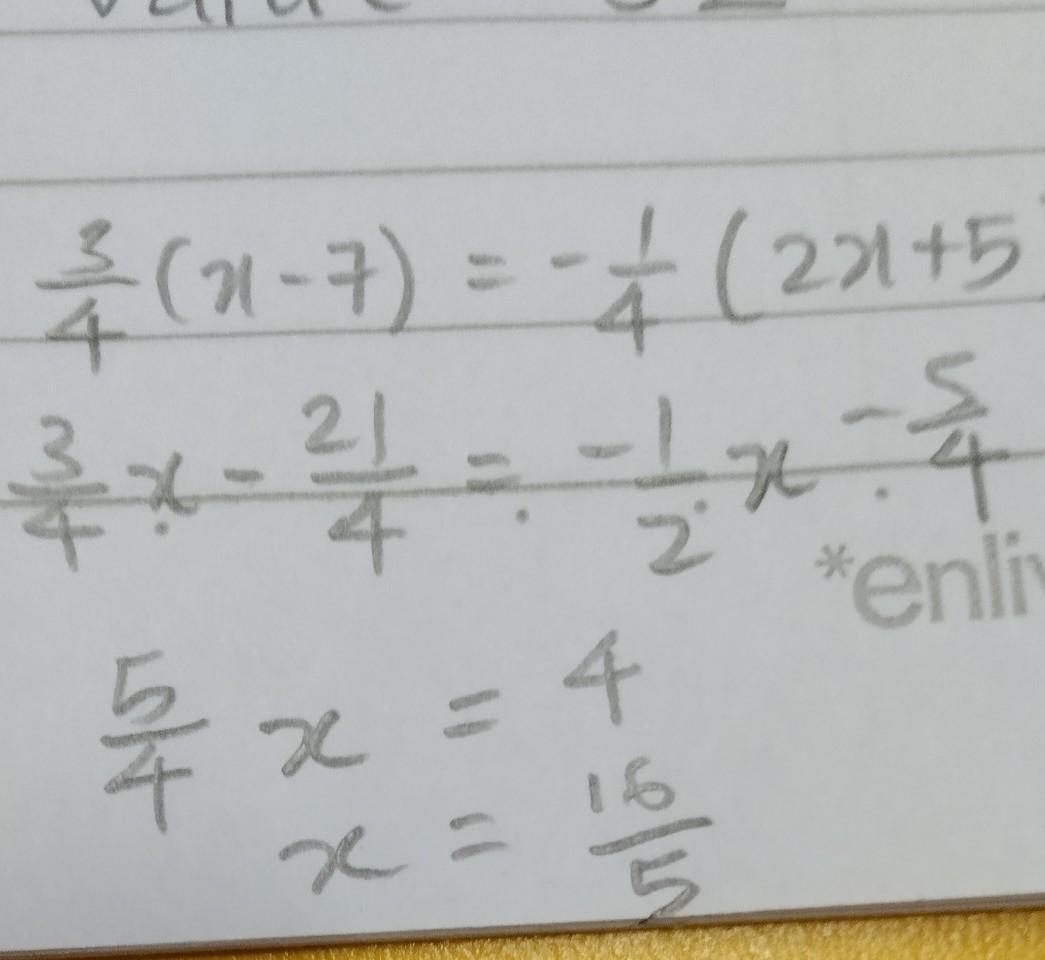 3/4 (x - 7) = - 1/4 (2x + 5)
3/4 x - 21/4 = -1/2 x - 5/4
*enliv
5/4 x = 4
x = 16/5